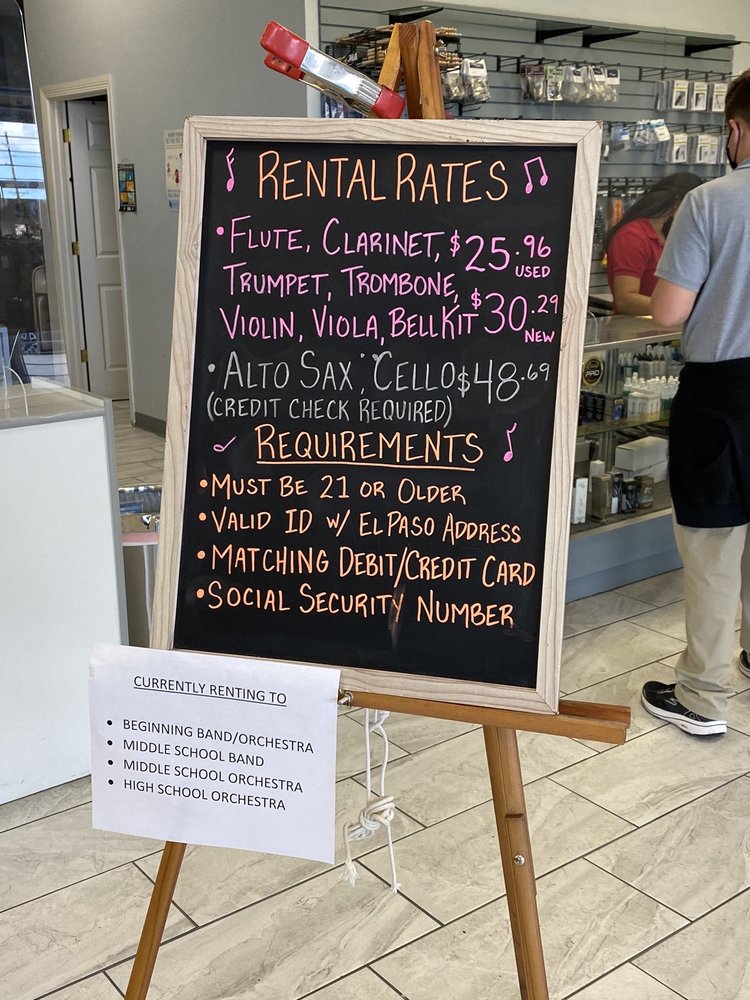 RENTAL RATES
• FLUTE, CLARINET, $25.96 USED
TRUMPET, TROMBONE,
VIOLIN, VIOLA, BELL KIT $30.29 NEW
• ALTO SAX, CELLO $48.69
(CREDIT CHECK REQUIRED)
REQUIREMENTS
• MUST BE 21 OR OLDER
• VALID ID W/ EL PASO ADDRESS
• MATCHING DEBIT/CREDIT CARD
• SOCIAL SECURITY NUMBER
CURRENTLY RENTING TO
• BEGINNING BAND/ORCHESTRA
• MIDDLE SCHOOL BAND
• MIDDLE SCHOOL ORCHESTRA
• HIGH SCHOOL ORCHESTRA
PRO